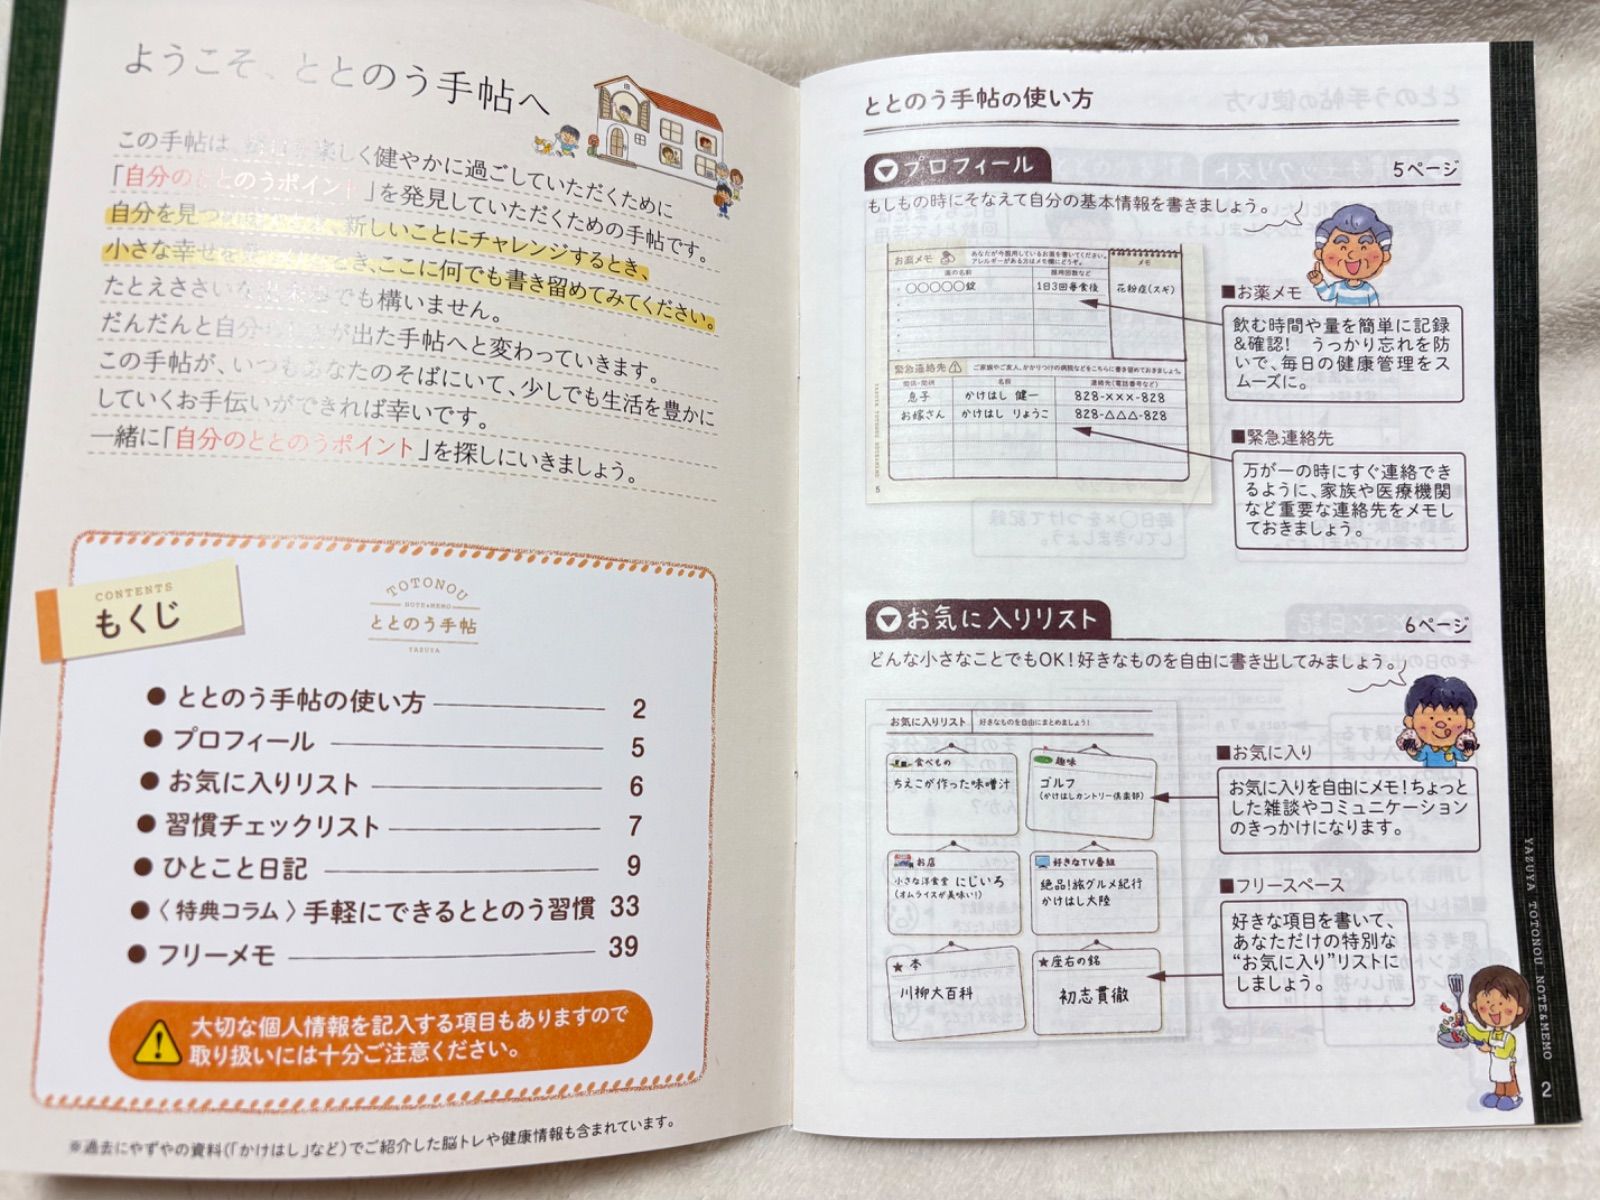 ようこそ、ととのう手帖へ
この手帖は、毎日を楽しく健やかに過ごしていただくために
「自分のととのうポイント」を発見していただくための手帖です。
自分を見つめ、新しいことにチャレンジするとき、
小さな幸せを とき、ここに何でも書き留めてみてください。
たとえささいな でも構いません。
だんだんと自分 が出た手帖へと変わっていきます。
この手帖が、いつもあなたのそばにいて、少しでも生活を豊かに
していくお手伝いができれば幸いです。
一緒に「自分のととのうポイント」を探しにいきましょう。
CONTENTS
もくじ
TOTONOU
NOTE&MEMO
ととのう手帖
YAZUYA
●ととのう手帖の使い方 2
●プロフィール 5
●お気に入りリスト 6
●習慣チェックリスト 7
●ひとこと日記 9
●〈特典コラム〉手軽にできるととのう習慣 33
●フリーメモ 39
大切な個人情報を記入する項目もありますので
取り扱いには十分ご注意ください。
※過去にやずやの資料(「かけはし」など)でご紹介した脳トレや健康情報も含まれています。
ととのう手帖の使い方
プロフィール 5ページ
もしもの時にそなえて自分の基本情報を書きましょう。
お薬メモ
あなたが今服用しているお薬を書いてください。
アレルギーがある方はメモ欄にどうぞ。
メモ
薬の名前 服用回数など
○○○○○錠 1日3回毎食後 花粉症(スギ)
緊急連絡先 ご家族やご友人、かかりつけの病院などをこちらに書き留めておきましょう。
関係・間柄 名前 連絡先(電話番号など)
息子 かけはし 健一 828-×××-828
お嫁さん かけはし りょうこ 828-△△△-828
5
■お薬メモ
飲む時間や量を簡単に記録
&確認! うっかり忘れを防
いで、毎日の健康管理をス
ムーズに。
■緊急連絡先
万が一の時にすぐ連絡でき
るように、家族や医療機関
など重要な連絡先をメモし
ておきましょう。
お気に入りリスト 6ページ
どんな小さなことでもOK!好きなものを自由に書き出してみましょう。
お気に入りリスト 好きなものを自由にまとめましょう!
食べもの
ちえこが作った味噌汁
趣味
ゴルフ
(かけはしカントリー倶楽部)
お店
小さな洋食堂 にじいろ
(オムライスが美味い!)
好きなTV番組
絶品!旅グルメ紀行
かけはし大陸
★本
川柳大百科
★座右の銘
初志貫徹
■お気に入り
お気に入りを自由にメモ!ちょっと
した雑談やコミュニケーション
のきっかけになります。
■フリースペース
好きな項目を書いて、
あなただけの特別な
“お気に入り”リストに
しましょう。
YAZUYA TOTONOU NOTE&MEMO
2